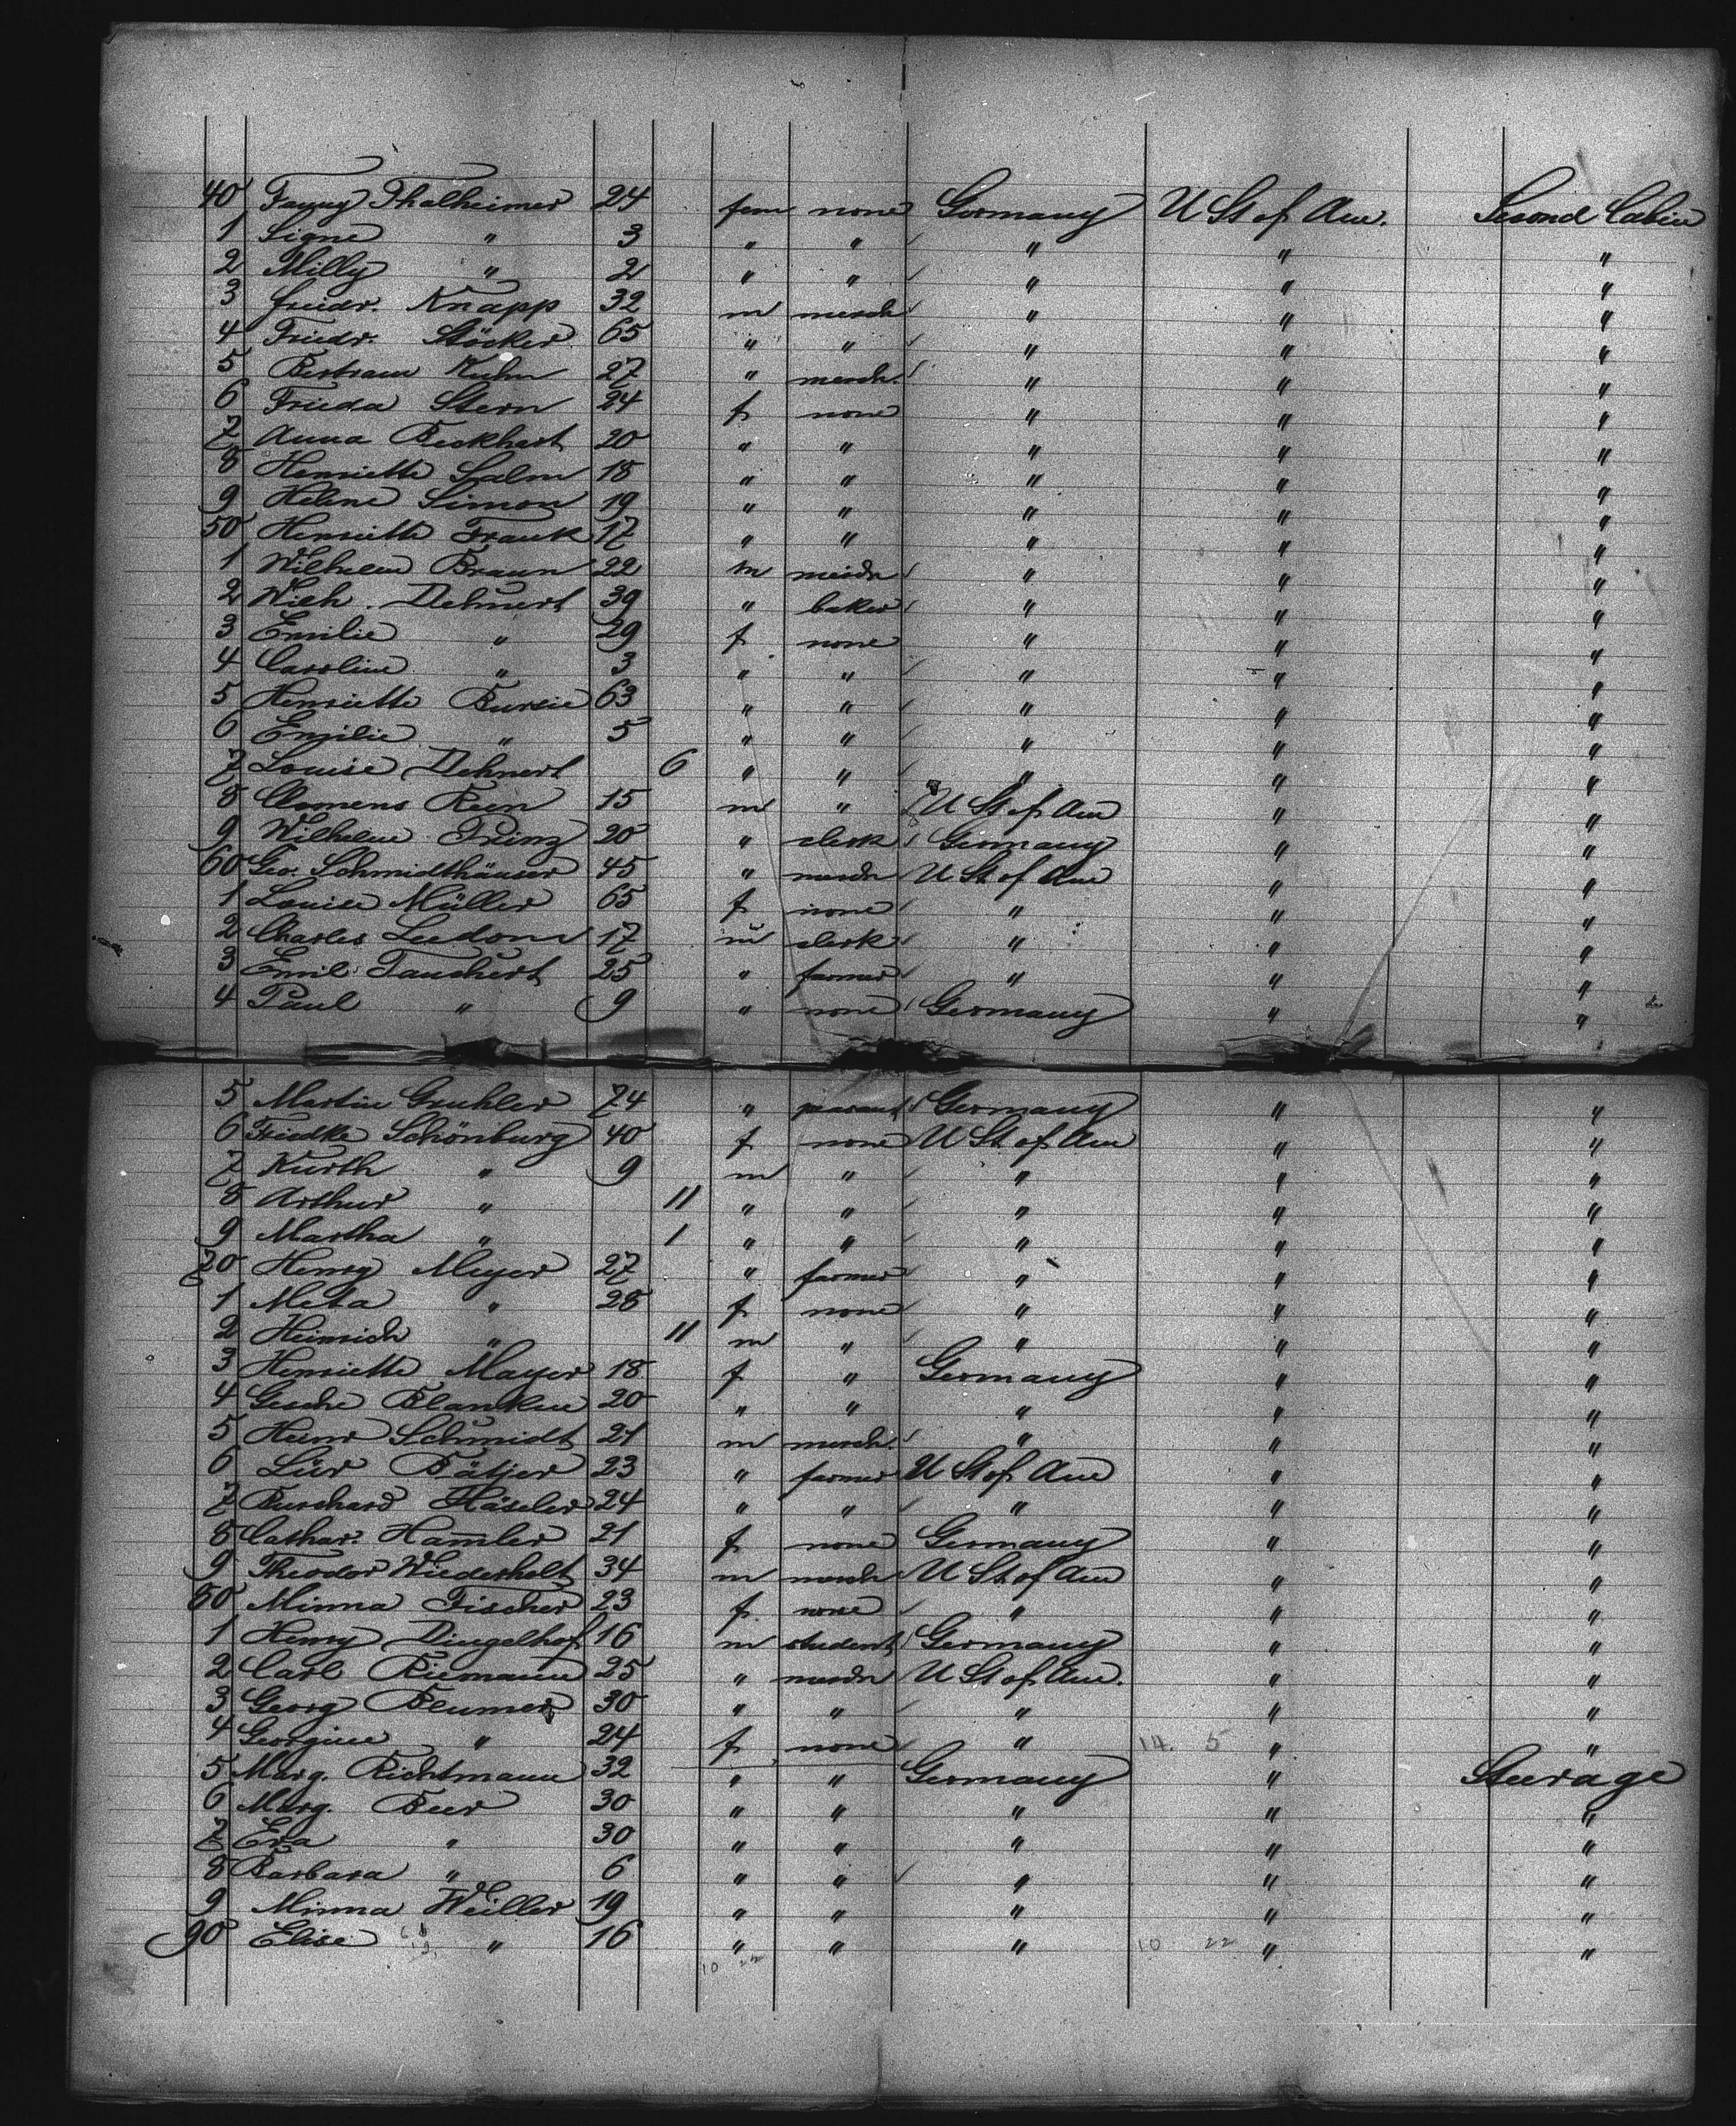 40 Fanny Thalheimer 24 fem none Germany U St of Am. Second Cabin
1 Signe " 3 " " " " "
2 Milly " 2 " " " " "
3 Friedr. Knapp 32 m merch " " "
4 Friedr. Stöcker 65 " " " " "
5 Bertram Kuhn 27 " merch. " " "
6 Frieda Stern 24 f none " " "
7 Anna Beckhart 20 " " " " "
8 Henriette Salm 18 " " " " "
9 Helene Simon 19 " " " " "
50 Henriette Frank 17 " " " " "
1 Wilhelm Braun 22 m merch " " "
2 Wilh. Dehnert 39 " baker " " "
3 Emilie " 29 f none " " "
4 Caroline " 3 " " " " "
5 Henriette 63 " " " " "
6 Emilie " 5 " " " " "
7 Louise Dehnert 6 " " " " "
8 Clemens Reen 15 m " U St of Am " "
9 Wilhelm Prinz 20 " clerk Germany " "
60 Geo. Schmidthäuser 45 " merch U St of Am " "
1 Louise Müller 65 f none " " "
2 Charles Leedom 17 m clerk " " "
3 Emil Tauchert 25 " farmer " " "
4 Paul " 9 " none Germany " "
5 Martin Gruhler 74 " Germany " "
6 Friedke Schönburg 40 f none U St of Am " "
7 Kurth " 9 m " " " "
8 Arthur " 11 " " " " "
9 Martha " 1 " " " " "
70 Henry Meyer 27 " farmer " " "
1 Meta " 28 f none " " "
2 Heinrich " 11 m " " " "
3 Henriette Mayer 18 f " Germany " "
4 Gesche Blanken 20 " " " " "
5 Heinr Schmidt 21 m merch. " " "
6 Lür Bätjer 23 " farmer U St of Am " "
7 Burchard Häseler 24 " " " " "
8 Cathar. Hamler 21 f none Germany " "
9 Theodor Wiederholt 34 m merch U St of Am " "
80 Minna Fischer 23 f none " " "
1 Henry Dingelhof 16 m student Germany " "
2 Carl Riemann 25 " merch U St of Am. " "
3 Georg Blumer 30 " " " " "
4 Georgine " 24 f none " 14. 5 " "
5 Marg. Richtmann 32 " " Germany " Steerage
6 Marg. Beer 30 " " " " "
7 Eva " 30 " " " " "
8 Barbara " 6 " " " " "
9 Minna Weiller 19 " " " " "
90 Elise " 16 " " " 10 22 " "
10 22